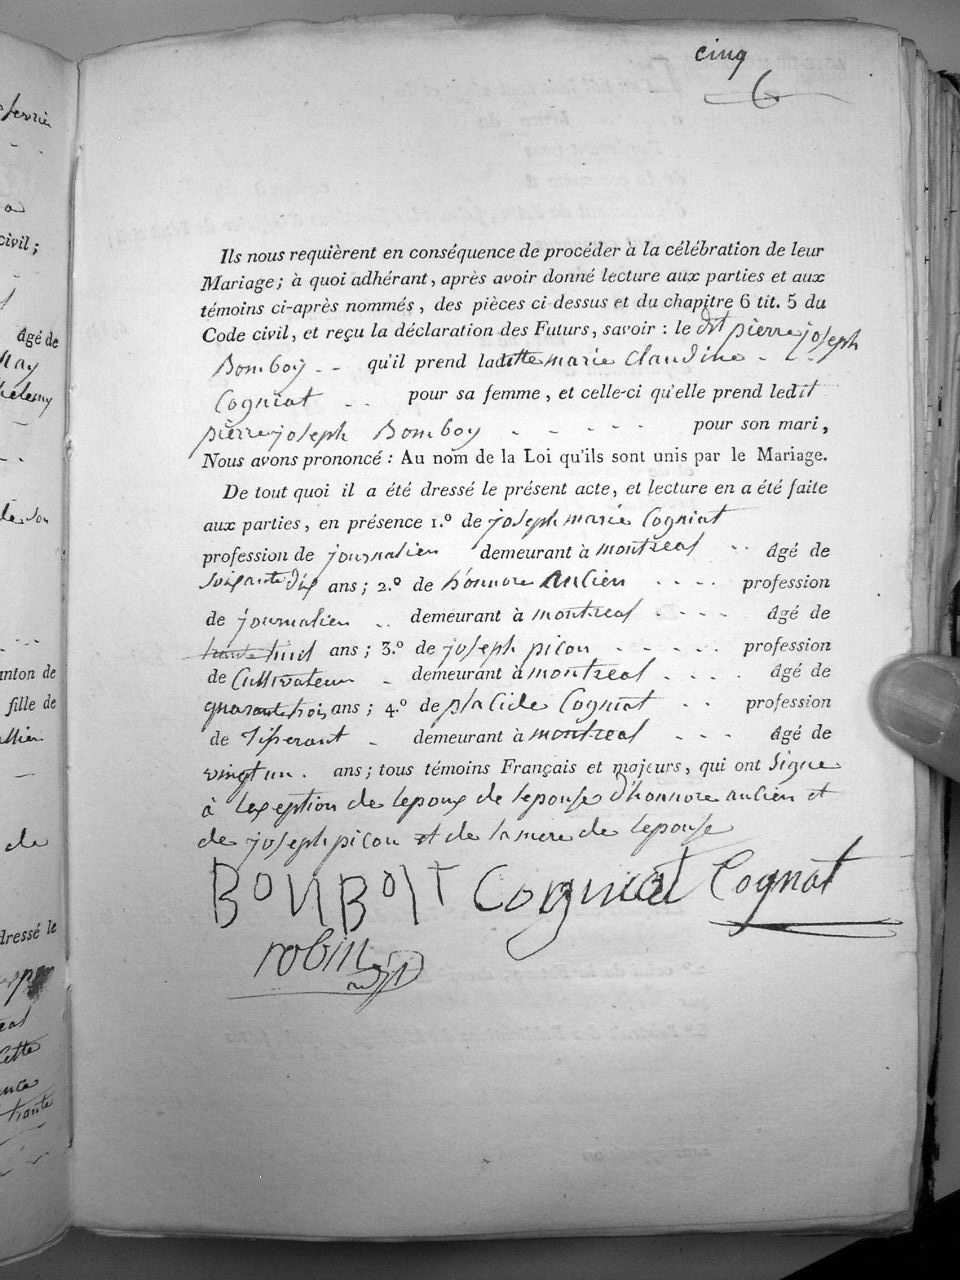 cinq
6
Ils nous requièrent en conséquence de procéder à la célébration de leur
Mariage; à quoi adhérant, après avoir donné lecture aux parties et aux
témoins ci-après nommés, des pièces ci dessus et du chapitre 6 tit. 5 du
Code civil, et reçu la déclaration des Futurs, savoir : le dit pierre joseph
Bomboy - - qu'il prend ladette marie Claudine - - -
Cogniat - - pour sa femme, et celle-ci qu'elle prend ledit
pierre joseph Bomboy - - - - - pour son mari,
Nous avons prononcé : Au nom de la Loi qu'ils sont unis par le Mariage.
De tout quoi il a été dressé le présent acte, et lecture en a été faite
aux parties, en présence 1.º de joseph marie Cogniat
profession de journalien demeurant à montreal - - âgé de
soixante dix ans; 2.º de honnore Ancien - - - - profession
de journalien - - demeurant à montreal - - - - âgé de
trente huit ans; 3.º de joseph picou - - - - - profession
de Cultivateur - demeurant à montreal - - - - âgé de
quarante trois ans; 4.º de placide Cogniat - - profession
de Tiserant - demeurant à montreal - - - âgé de
vingt un. ans; tous témoins Français et majeurs, qui ont Signe
à lexeption de lepoux de lepouse d'honnore ancien et
de joseph picou et de la mere de lepouse
BONBOIT Corgniat Cognat
robin
févrie
civil;
âgé de
anton de
fille de
de
dressé le